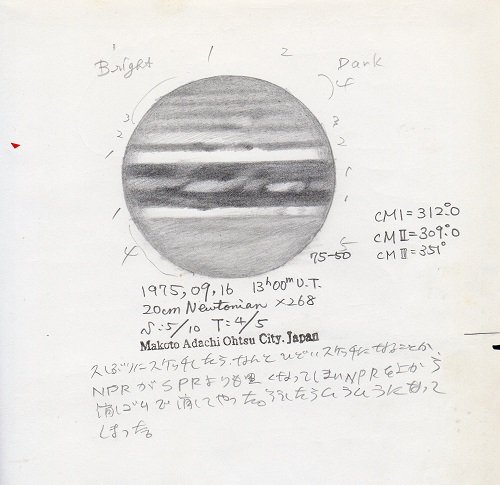 Bright 1 2 Dark
4
3 3
2 2
1 1
1
1
4 5
75-50
CMI = 312.°0
CMII = 309.°0
CMIII = 351°
1975, 09, 16 13h00m U.T.
20cm Newtonian ×268
S:5/10 T:4/5
Makoto Adachi Ohtsu City. Japan
久しぶりにスケッチしたら、なんとひどいスケッチになることか、
NPRがSPRより黒くなってしまいNPRを上から
消しゴムで消してやった。そうしたらムラムラになって
しまった。